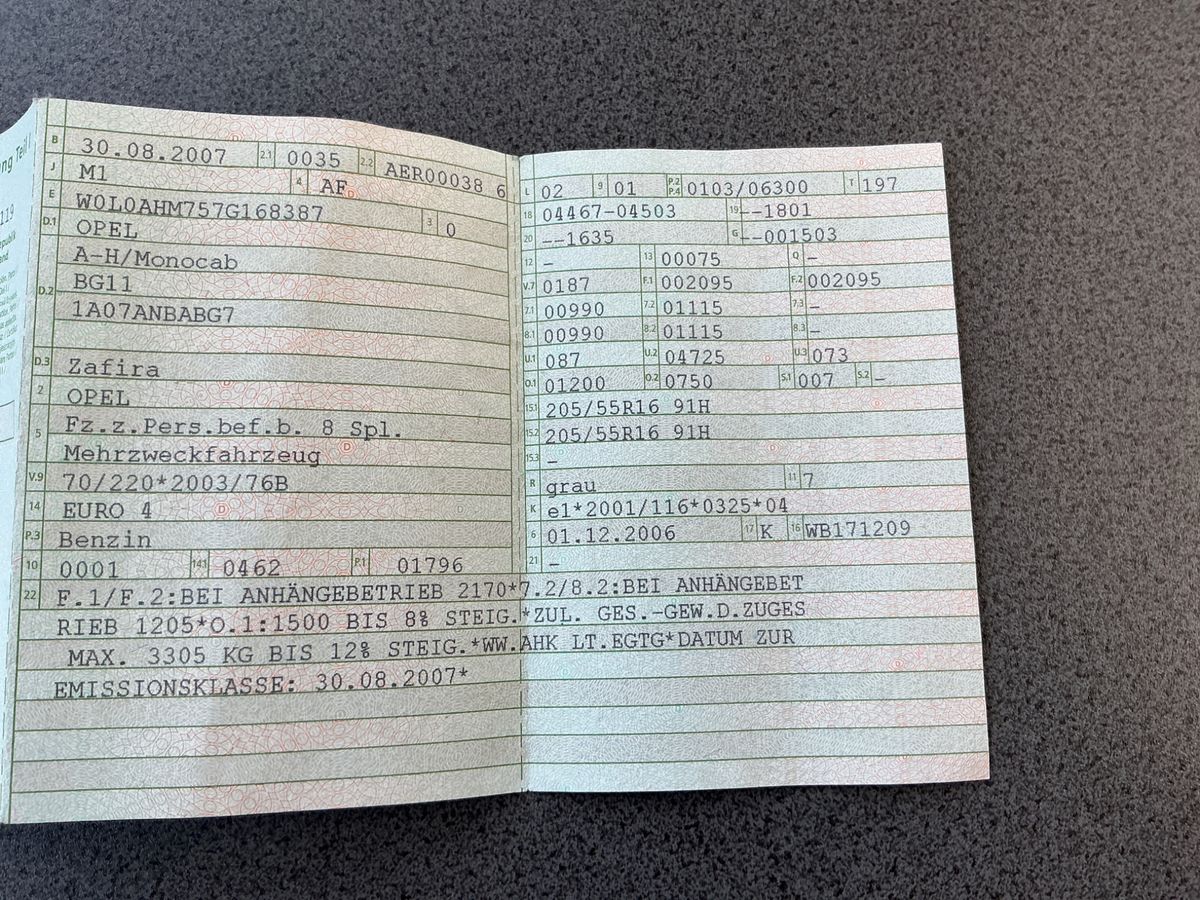 ng Teil I
119
B 30.08.2007 2.1 0035 2.2 AER00038 6
J M1 4 AF
E W0L0AHM757G168387 3 0
D.1 OPEL
D.2 A-H/Monocab
BG11
1A07ANBABG7
D.3 Zafira
2 OPEL
5 Fz.z.Pers.bef.b. 8 Spl.
Mehrzweckfahrzeug
V.9 70/220*2003/76B
14 EURO 4
P.3 Benzin
10 0001 14.1 0462 P.1 01796
L 02 9 01 P.2 P.4 0103/06300 T 197
18 04467-04503 19 --1801
20 --1635 G --001503
12 - 13 00075 Q -
V.7 0187 F.1 002095 F.2 002095
7.1 00990 7.2 01115 7.3 -
8.1 00990 8.2 01115 8.3 -
U.1 087 U.2 04725 U.3 073
O.1 01200 O.2 0750 S.1 007 S.2 -
15.1 205/55R16 91H
15.2 205/55R16 91H
15.3 -
R grau 11 7
K e1*2001/116*0325*04
6 01.12.2006 17 K 16 WB171209
21 -
22 F.1/F.2:BEI ANHÄNGEBETRIEB 2170*7.2/8.2:BEI ANHÄNGEBET
RIEB 1205*O.1:1500 BIS 8% STEIG.*ZUL. GES.-GEW.D.ZUGES
MAX. 3305 KG BIS 12% STEIG.*WW.AHK LT.EGTG*DATUM ZUR
EMISSIONSKLASSE: 30.08.2007*